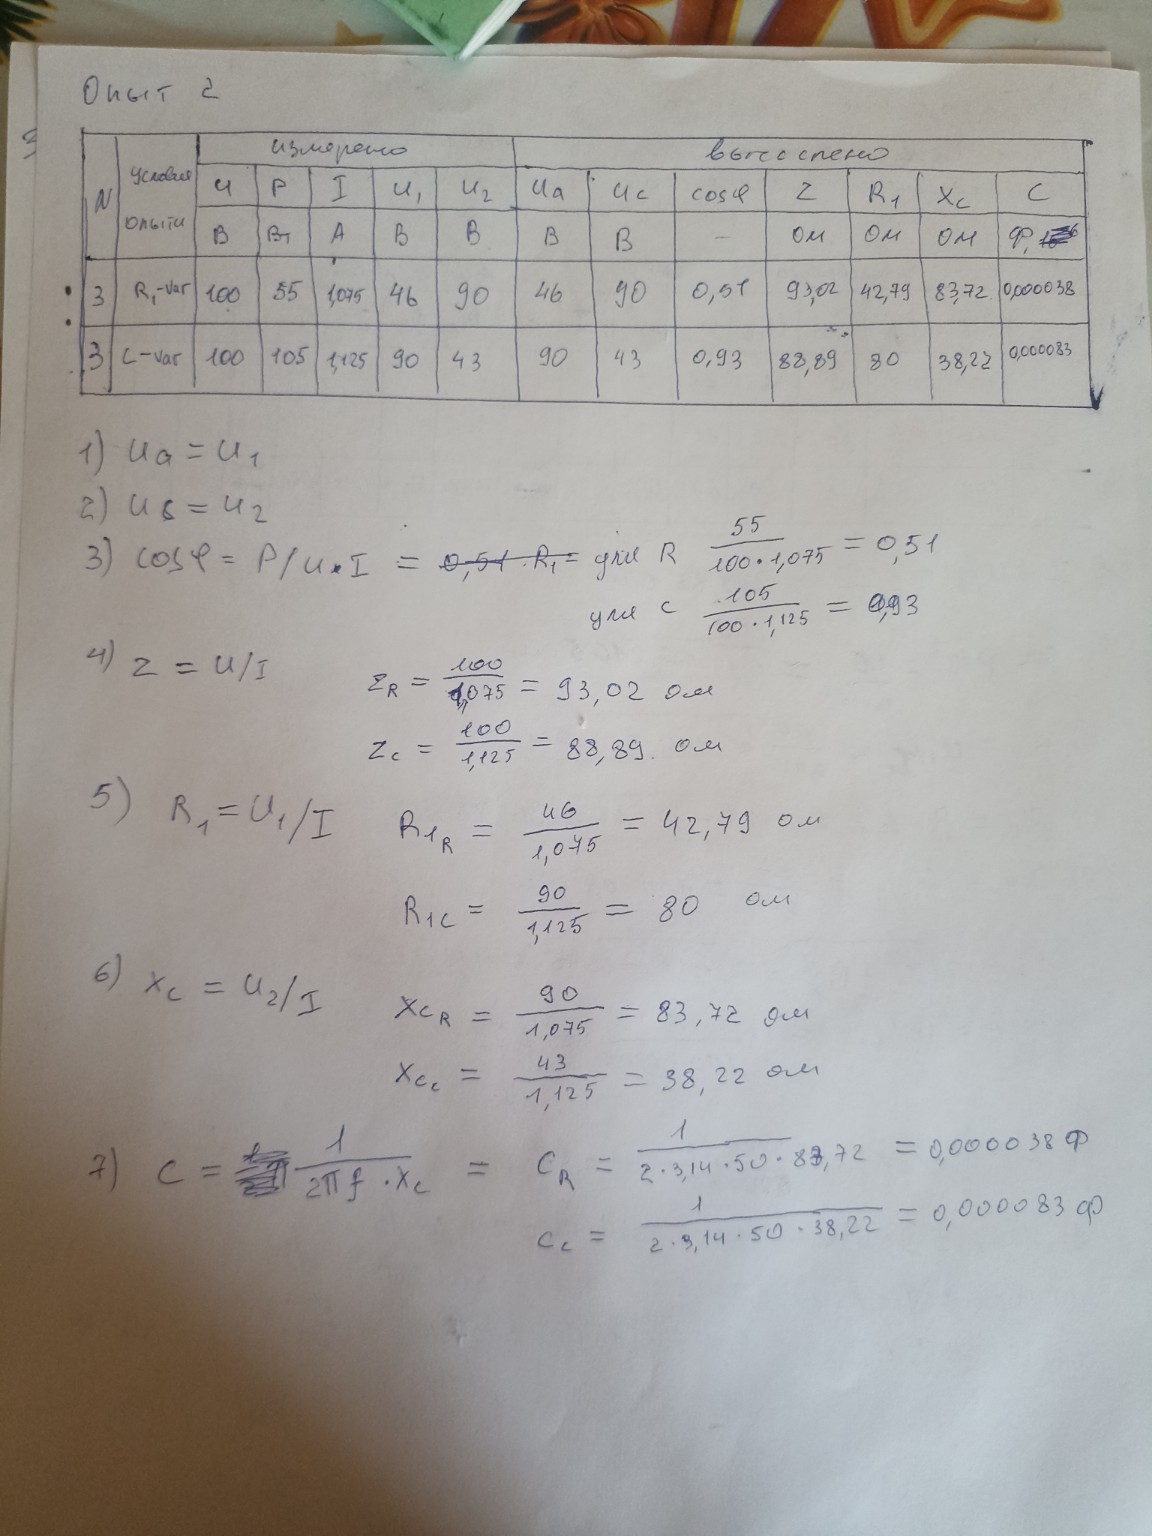 Опыт 2
N условия опыта измерено вычеслено
U P I U1 U2 Ua Uc cosφ Z R1 Xc C
В Вт А В В В В — Ом Ом Ом Ф,
3 R1-var 100 55 1,075 46 90 46 90 0,51 93,02 42,79 83,72 0,000038
3 C-var 100 105 1,125 90 43 90 43 0,93 88,89 80 38,22 0,000083
1) Ua = U1
2) Uв = U2
3) cosφ = P/U•I = 0,51 R1= для R 55/100•1,075 = 0,51
для C 105/100•1,125 = 0,93
4) Z = U/I ZR = 100/1,075 = 93,02 ом
Zc = 100/1,125 = 88,89 ом
5) R1 = U1/I R1R = 46/1,075 = 42,79 ом
R1C = 90/1,125 = 80 ом
6) Xc = U2/I XcR = 90/1,075 = 83,72 ом
Xcc = 43/1,125 = 38,22 ом
7) C = 1/2πf•Xc = CR = 1/2•3,14•50•83,72 = 0,000038 Ф
Cc = 1/2•3,14•50•38,22 = 0,000083 Ф